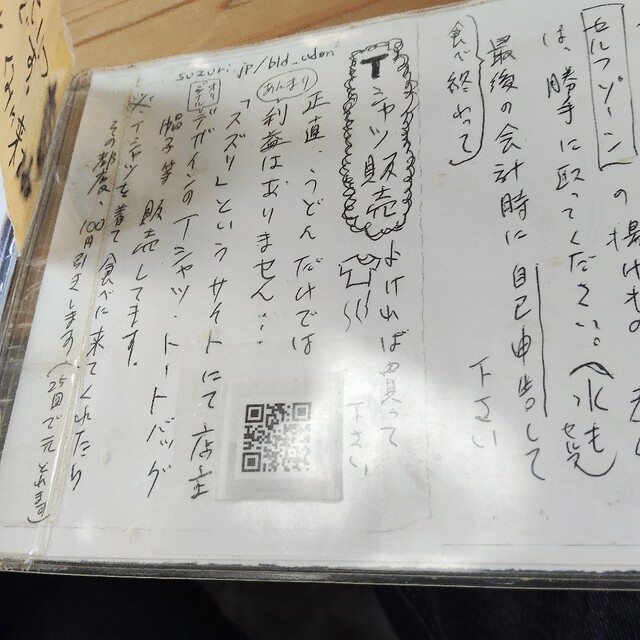 セルフゾーン の揚げもの
は、勝手に取ってください。(水もセルフ)
最後の会計時に 自己申告して
下さい
食べ終わって
Tシャツ販売
よければ買って
下さい
正直、うどんだけでは
あんまり
利益はありません…
「スズリ」というサイトにて店主
デザインのTシャツ・トートバッグ
帽子等 販売してます。
※Tシャツを着て食べに来てくれたら
その都度、100円引きします(25回で元
suzuri.jp/bld_udon